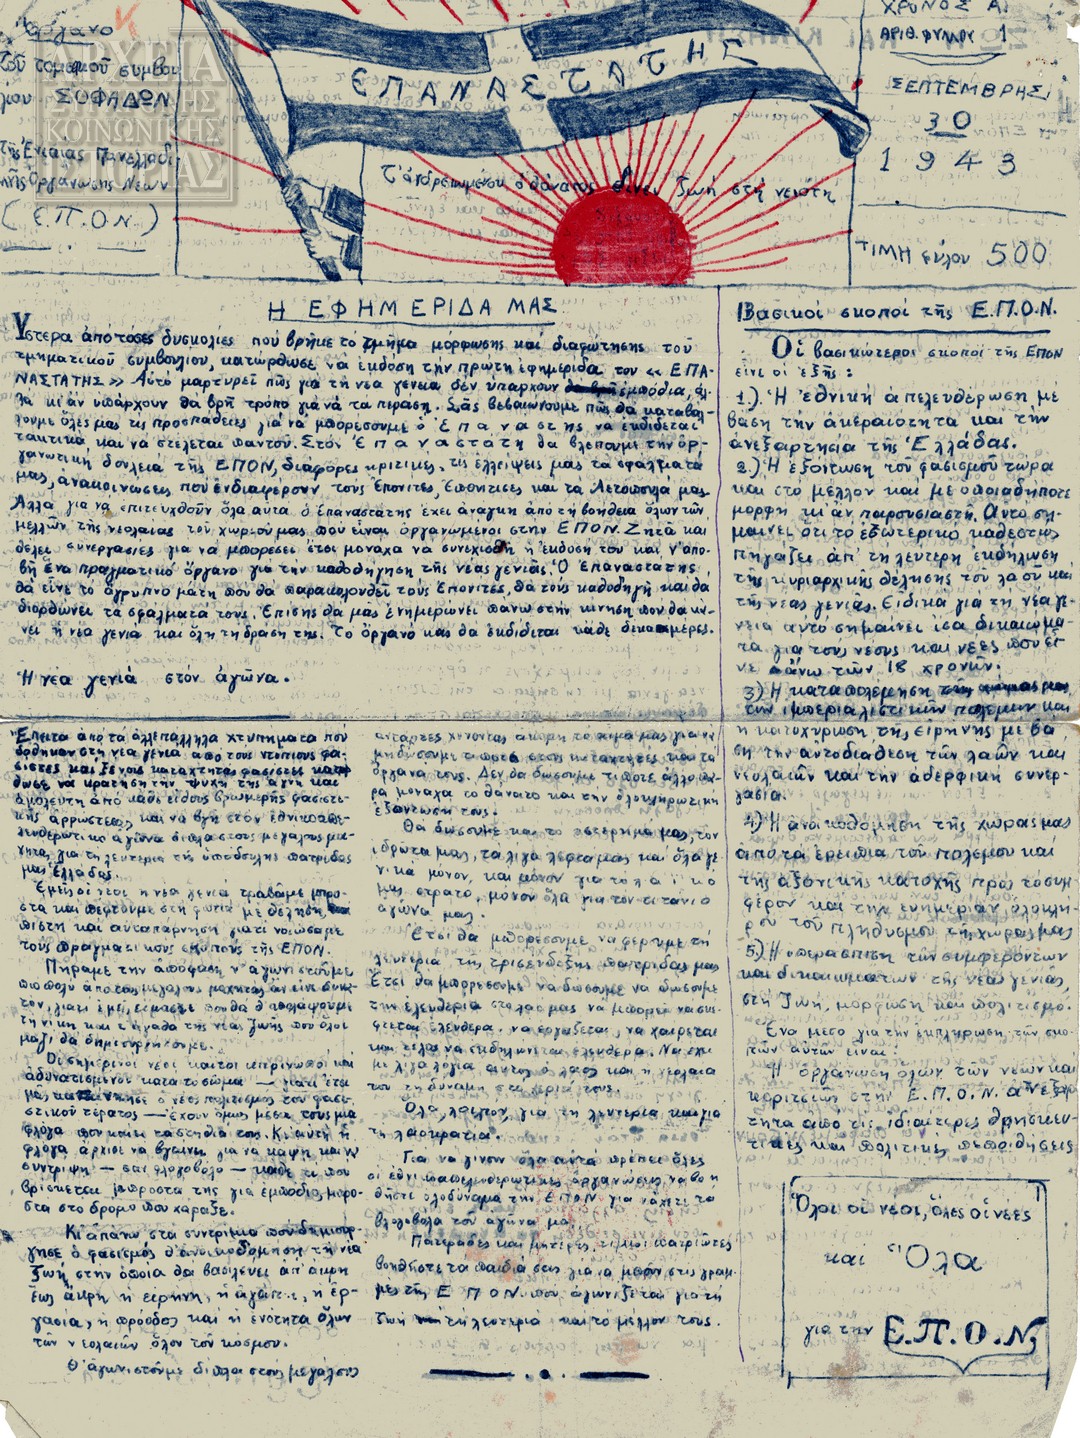 Όργανο
τοῦ τομεακοῦ συμβου
λίου
ΣΟΦΑΔΩΝ
τῆς Ἑνιαίας Πανελλαδι
κῆς Ὀργάνωσης Νέων
(Ε.Π.Ο.Ν.)
ΑΡΧΕΙΑ
ΣΥΓΧΡΟΝΗΣ
ΚΟΙΝΩΝΙΚΗΣ
ΙΣΤΟΡΙΑΣ
ΕΠΑΝΑΣΤΑΤΗΣ
Τ' ἀνδρειωμένου ὁ θάνατος δίνει ζωή στή νειότη
ΧΡΥΝΟΣ Α.
ΑΡΙΘ. ΦΥΛΛΟΥ 1
ΣΕΠΤΕΜΒΡΗΣ
30
1943
ΤΙΜΗ φύλου 500
Η ΕΦΗΜΕΡΙΔΑ ΜΑΣ
Ύστερα ἀπό τόσες δυσκολίες πού βρῆκε τό τμῆμα μόρφωσης καί διαφώτησης τοῦ
τμηματικοῦ συμβουλίου, κατώρθωσε νά ἐκδόση τήν πρώτη ἐφημερίδα του «ΕΠΑ-
ΝΑΣΤΑΤΗΣ» Αὐτό μαρτυρεῖ πῶς γιά τή νέα γενειά δέν ὑπάρχουν ἐμπόδια, ἀλ-
λά κι' ἄν ὑπάρχουν θά βρῆ τρόπο γιά νά τά περάση. Σᾶς βεβαιώνουμε πῶς θά καταβά-
λουμε ὅλες μας τίς προσπάθειες γιά νά μπορέσουμε ὁ Ἐπαναστης νά ἐκδίδεται
ταχτικά καί νά στέλεται παντοῦ. Στόν Ἐπαναστάτη θά βλέπουμε τήν ὀρ-
γανωτική δουλειά τῆς ΕΠΟΝ, διάφορες κριτικές, τίς ἐλλείψεις μας τά σφάλματά
μας, ἀνακοινώσεις πού ἐνδιαφέρουν τούς Ἐπονίτες, Ἐπονίτισες καί τά Ἀετόπουλά μας.
Ἀλλά γιά νά ἐπιτευχθοῦν ὅλα αὐτά ὁ ἐπαναστάτης ἔχει ἀνάγκη ἀπό τή βοήθεια ὅλων τῶν
μελλῶν τῆς νεολαίας τοῦ χωριοῦ μας πού εἶναι ὀργανωμένοι στήν ΕΠΟΝ. Ζητᾶ καί
θέλει συνεργασίες γιά νά μπορέσει ἔτσι μονάχα νά συνεχισθῆ ἡ ἔκδοσή του καί ν' ἀπο-
βῆ ἕνα πραγματικό ὄργανο γιά τήν καθοδήγηση τῆς νέας γενιᾶς. Ὁ Ἐπαναστάτης
θά εἶνε τό ἄγρυπνο μάτη πού θά παρακολουθεῖ τούς Ἐπονίτες, θά τούς καθοδηγῆ καί θά
διορθώνει τά σφάλματά τους. Ἐπίσης θά μᾶς ἐνημερώνει πάνω στήν κίνηση πού θά κά-
νει ἡ νέα γενιά καί ὅλη τή δράση της. Το ὄργανό μας θά ἐκδίδεται κάθε δεκαημέρες.
Ἡ νέα γενιά στόν ἀγῶνα.
Ἔπειτα ἀπό τά ἀλλεπάλληλα χτυπήματα πού
δόθηκαν στή νέα γενιά ἀπό τούς ντόπιους φα-
σίστες καί ξένους καταχτητές φασίστες κατώρ
θωσε νά κρατήση τήν ψυχή της ἁγνή καί
ἀμόλευτη ἀπό κάθε εἴδους βρωμερῆς φασιστι-
κῆς ἀρρώστειας καί νά βγῆ στόν ἐθνικοαπε-
λευθερωτικό ἀγῶνα δίπλα στούς μεγάλους μα-
χητές γιά τή λευτεριά τῆς ὑπόδουλης πατρίδας
μας Ἑλλάδας.
Ἐμεῖς οἱ νέοι ἡ νέα γενιά τραβᾶμε μπρο-
στά καί πέφτουμε στή φωτιά μέ θέληση,
πίστη καί αὐταπάρνηση γιατί νοιώσαμε
τούς πραγματικούς σκοπούς τῆς ΕΠΟΝ.
Πήραμε τήν ἀπόφαση ν' ἀγωνιστοῦμε
πιό πολύ ἀπό τούς μεγάλους μαχητές
τή νίκη καί τ' ἀγαθά τῆς νέας ζωῆς πού ὅλοι
μαζί θά δημιουργήσουμε.
Οἱ σημερινοί νέοι καίτοι
ἀδυνατισμένοι κατά τό σῶμα — γιατί ἔτσι
μᾶς κατάντησε ὁ νέος πολιτισμός τοῦ φασι-
στικοῦ τέρατος — ἔχουν ὅμως μέσα τους μιά
φλόγα πού καίει τά στήθια τους. Κι' αὐτή ἡ
φλόγα ἄρχισε νά βγαίνη γιά νά κάψη καί ν
συντρίψη — σάν φλογοβόλο — κάθε τί πού
βρίσκεται μπροστά της γιά ἐμπόδιο, μπρο-
στά στό δρόμο πού χάραξε.
Κι' ἀπάνω στά συντρίμια πού δημιούρ-
γησε ὁ φασισμός θ' ἀνοικοδομήση τή νέα
ζωή στήν ὁποία θά βασιλεύει ἀπ' ἄκρη
ἕως ἄκρη ἡ εἰρήνη, ἡ ἀγάπη, ἡ ἐρ-
γασία, ἡ πρόοδος καί ἡ ἑνότητα ὅλων
τῶν νεολαιῶν ὅλου τοῦ κόσμου.
Θ' ἀγωνιστοῦμε δίπλα στούς μεγάλους
ἀντάρτες χύνοντας ἀκόμη τό αἷμα μας γιά νά
μή δώσουμε σπυρί στούς καταχτητές καί τά
ὄργανά τους. Δέν θά δώσουμε τίποτε ἄλλο πα-
ρά μονάχα τό θάνατο καί τήν ὁλοκληρωτική
ἐξόντωσή τους.
Θά δώσουμε καί τό ὑστέρημά μας, τόν
ἱδρῶτα μας, τά λίγα λεφτά μας καί ὅλα γε
νικά μόνον, καί μόνον γιά τό λαϊκό
μας στρατό, μόνον ὅλα γιά τόν τιτάνιο
ἀγῶνα μας.
Ἔτσι θά μπορέσουμε νά φέρουμε τή
λευτεριά τῆς τρισένδοξης πατρίδας μας
Ἔτσι θά μπορέσουμε νά δώσουμε
τήν ἐλευθερία στό λαό μας νά μπορεῖ νά σκέ-
φτεται ἐλεύθερα, νά ἐργάζεται, νά χαίρεται
καί τέλος νά ἐκδηλώνεται ἐλεύθερα. Νά ἔχει
μέ λίγα λόγια αὐτός ὁ λαός καί ἡ νεολαία
του τή δύναμη στά χέρια τους.
Ὅλα, λοιπόν, γιά τή λευτεριά καί γιά
τή λαοκρατία.
Γιά νά γίνουν ὅλα αὐτά πρέπει ὅλες
οἱ ἐθνικοαπελευθερωτικές ὀργανώσεις νά βο η
θήσει ὁλοδύναμα τήν ΕΠΟΝ γιά νἄχει τά
βλογοβόλα τοῦ ἀγῶνα μα
Πατεράδες καί μητέρες, τίμιοι πατριῶτες
βοηθῆστε τά παιδιά σας γιά νά μποῦν στίς γραμ-
μές τῆς ΕΠΟΝ πού ἀγωνίζεται γιά τή
ζωή τή λευτεριά καί τό μέλλον τους.
Βασικοί σκοποί τῆς Ε.Π.Ο.Ν.
Οἱ βασικώτεροι σκοποί τῆς ΕΠΟΝ
εἶνε οἱ ἑξῆς:
1). Ἡ ἐθνική ἀπελευθέρωση μέ
βάση τήν ἀκεραιότητα καί τήν
ἀνεξαρτησία τῆς Ἑλλάδας.
2.) Ἡ ἐξόντωση τοῦ φασισμοῦ τώρα
καί στό μέλλον καί μέ ὁποιαδήποτε
μορφή κι' ἄν παρουσιαστῆ. Αὐτό ση-
μαίνει ὅτι τό ἐσωτερικό καθεστώς
πηγάζει ἀπ' τή λεύτερη ἐκδήλωση
τῆς κυριαρχικῆς θέλησης τοῦ λαοῦ καί
τῆς νέας γενιᾶς. Εἰδικά γιά τή νέα γε
νειά αὐτό σημαίνει ἴσα δικαιώμα-
τα γιά τούς νέους καί νέες πού εἶ-
νε πάνω τῶν 18 χρονῶν.
3) Ἡ καταπολέμηση
τῶν ἰμπεριαλιστικῶν πολέμων καί
ἡ κατοχύρωση τῆς εἰρήνης μέ βά
ση τήν αὐτοδιάθεση τῶν λαῶν καί
νεολαιῶν καί τήν ἀδερφική συνερ-
γασία.
4) Ἡ ἀνοικοδόμηση τῆς χώρας μας
ἀπό τά ἐρείπια τοῦ πολέμου καί
τῆς ἀξονικῆς κατοχῆς πρός τό συμ-
φέρον καί τήν εὐημερίαν ὁλοκλή-
ρου τοῦ πληθυσμοῦ τῆς χώρας μας
5) Ἡ ὑπεράσπιση τῶν συμφερόντων
καί δικαιωμάτων τῆς νέας γενιᾶς,
στή ζωή, μόρφωση καί πολιτισμό.
Ἕνα μέσο γιά τήν ἐκπλήρωση τῶν σκο-
πῶν αὐτῶν εἶναι:
Ἡ ὀργάνωση ὅλων τῶν νέων καί
κοριτσιῶν στήν Ε.Π.Ο.Ν. ἀνεξαρ
τητα ἀπό τίς ἰδιαίτερες θρησκευ-
τικές καί πολιτικές πεποιθήσεις
Ὅλοι οἱ νέοι, ὅλες οἱ νέες
καί Ὅλα
γιά τήν Ε.Π.Ο.Ν.